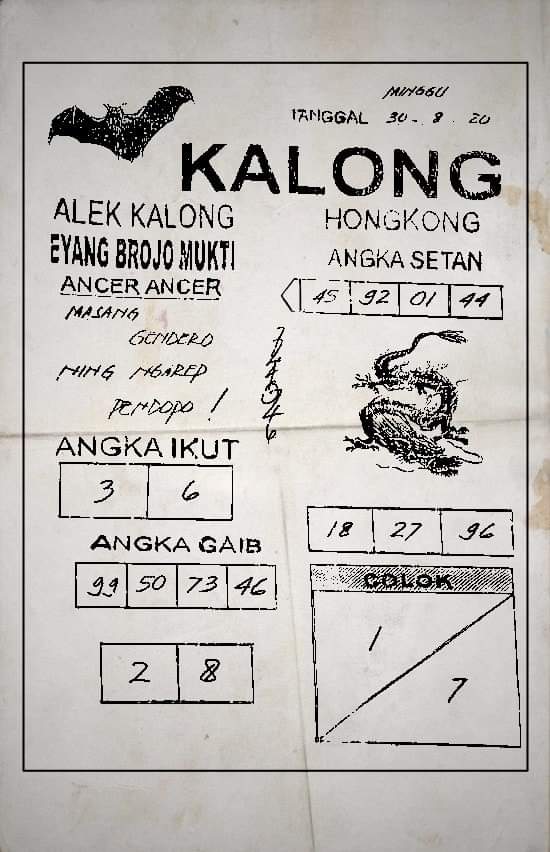 MINGGU
TANGGAL 30 - 8 - 20
KALONG
ALEK KALONG
EYANG BROJO MUKTI
ANCER ANCER
MASANG
GENDERO
NING NGAREP
PENDOPO !
HONGKONG
ANGKA SETAN
45 92 01 44
ANGKA IKUT
3 6
ANGKA GAIB
99 50 73 46
2 8
18 27 96
COLOK
1
7